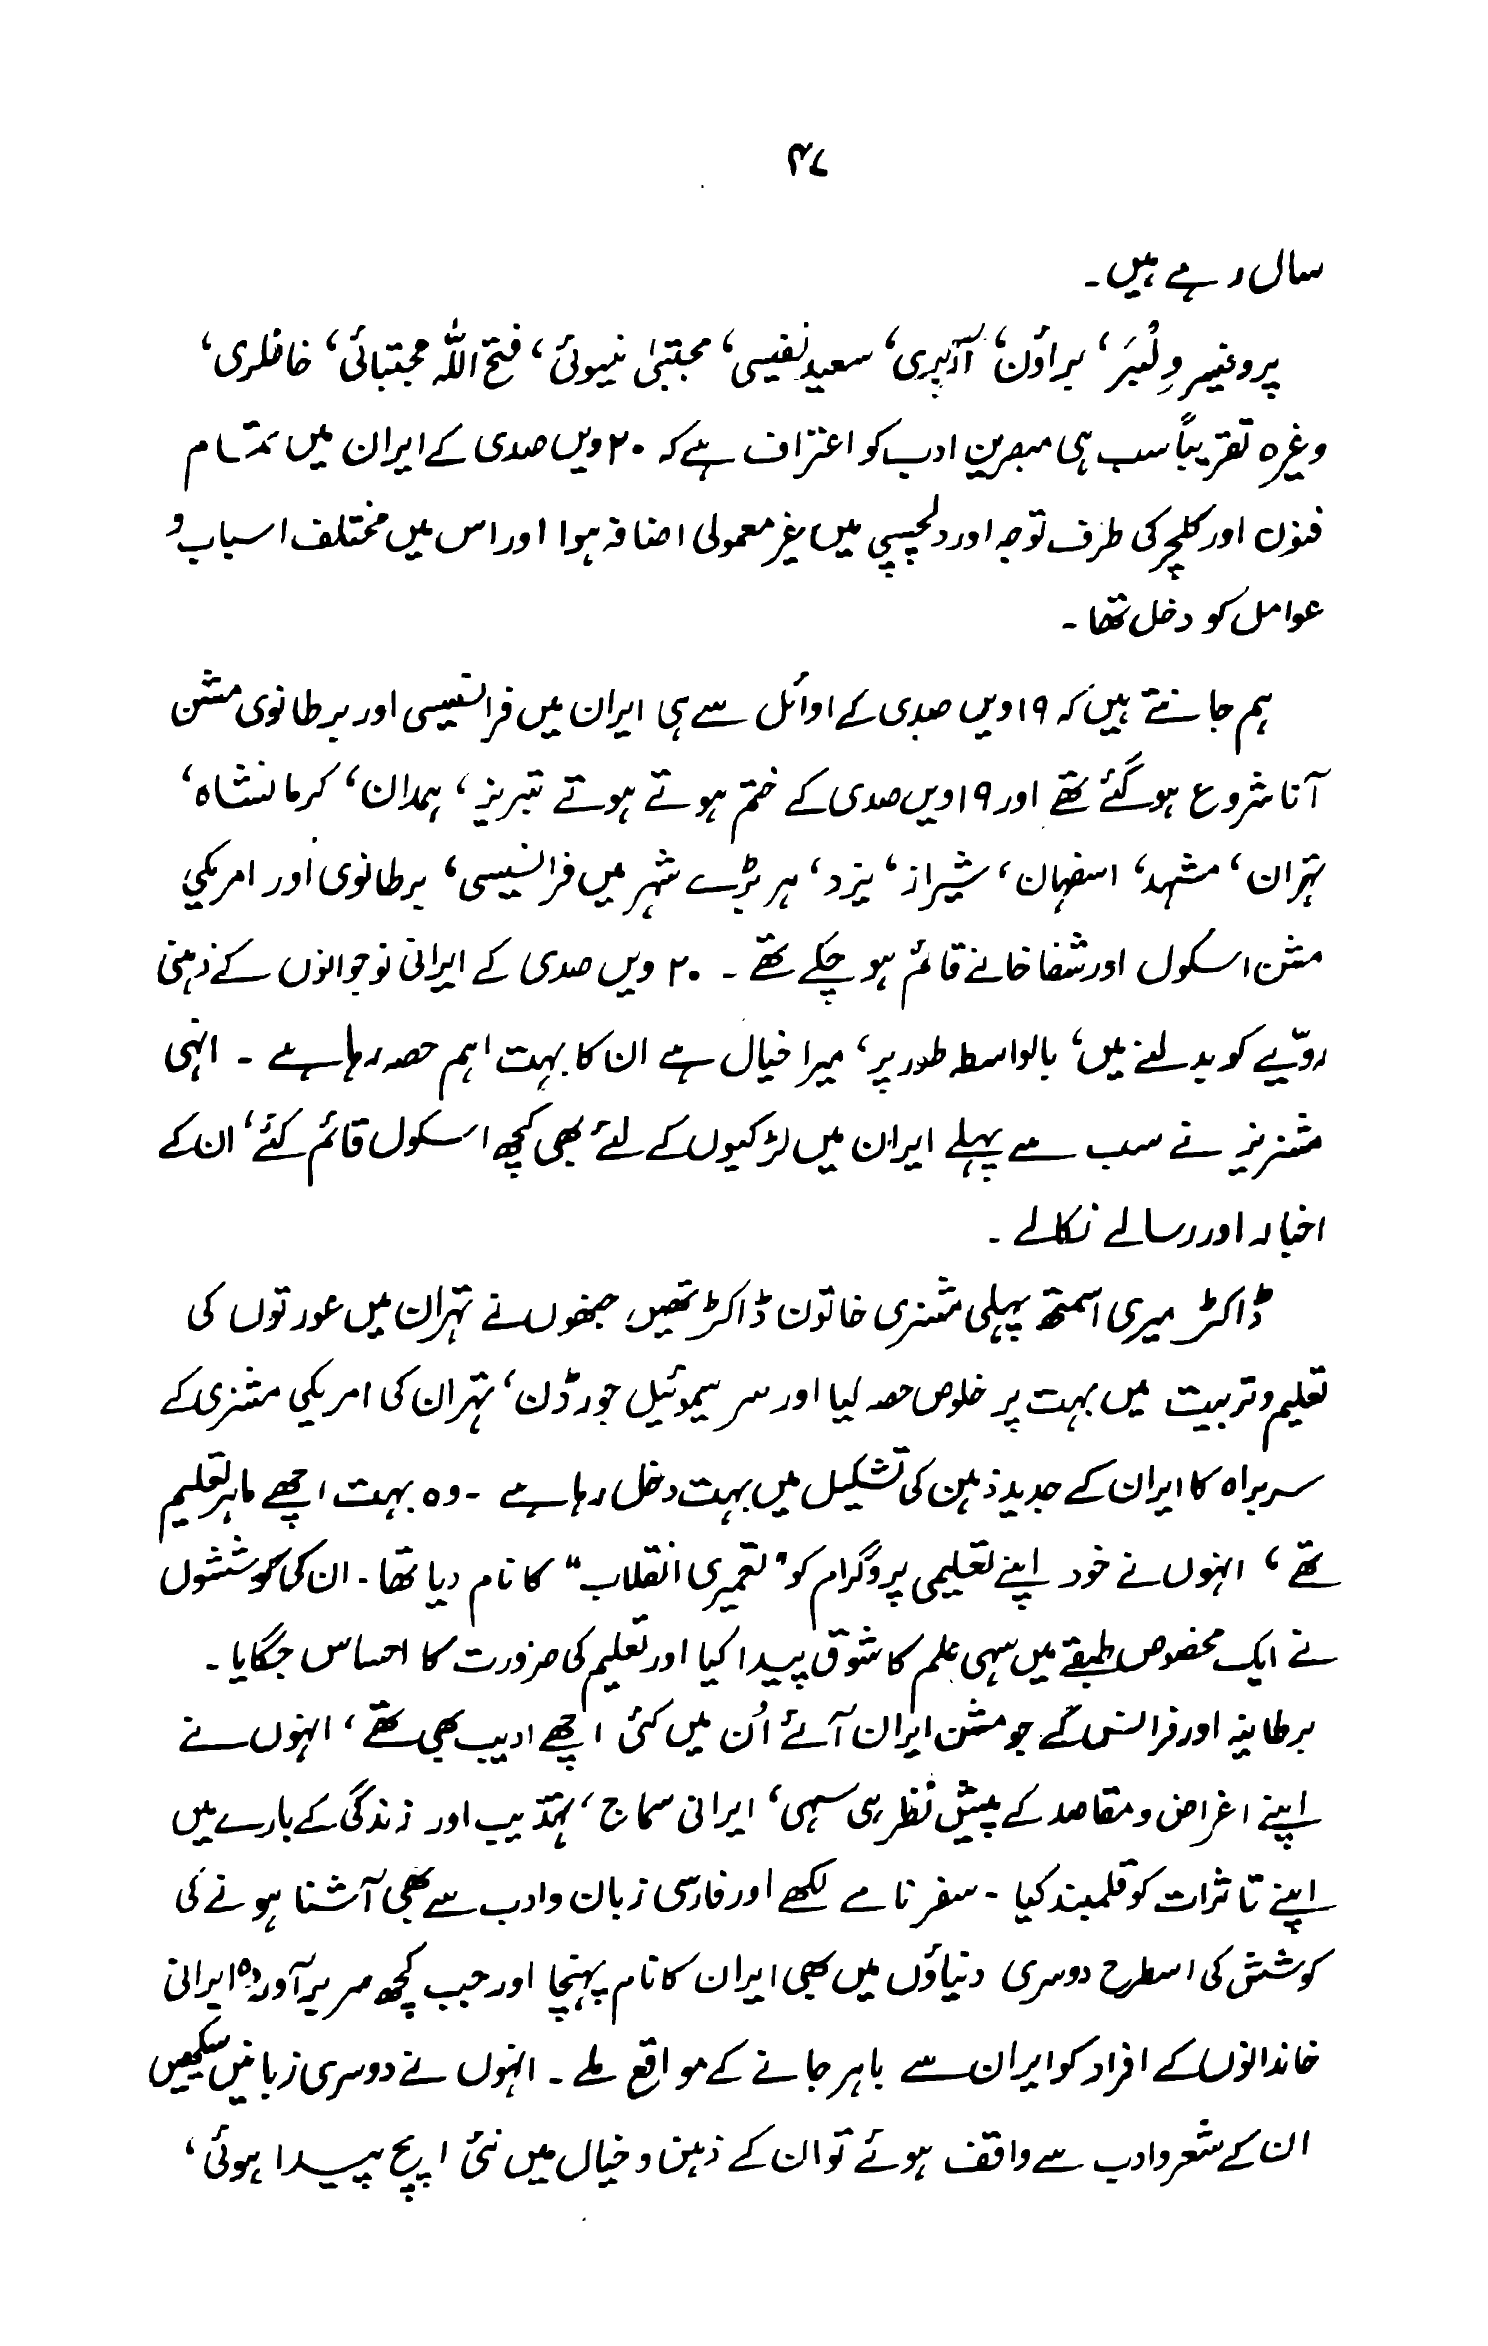 ۴۷
سال رہے ہیں۔
پروفیسر وِلْبَر، براؤن، آربری، سعید نفیسی، مجتبیٰ نیبوئی، فتح اللہ مجتبائی، خانلری،
وغیرہ تقریباً سب ہی مبصرین ادب کو اعتراف ہے کہ ۲۰ ویں صدی کے ایران میں تمام
فنون اور کلچر کی طرف توجہ اور دلچسپی میں غیر معمولی اضافہ ہوا اور اس میں مختلف اسباب و
عوامل کو دخل تھا۔
ہم جانتے ہیں کہ ۱۹ ویں صدی کے اوائل سے ہی ایران میں فرانسیسی اور برطانوی مشن
آنا شروع ہو گئے تھے اور ۱۹ ویں صدی کے ختم ہوتے ہوتے تبریز، ہمدان، کرمانشاہ،
تہران، مشہد، اصفہان، شیراز، یزد، ہر بڑے شہر میں فرانسیسی، برطانوی اور امریکی
مشن اسکول اور شفا خانے قائم ہو چکے تھے۔ ۲۰ ویں صدی کے ایرانی نوجوانوں کے ذہنی
رویّے کو بدلنے میں، بالواسطہ طور پر، میرا خیال ہے ان کا بہت اہم حصہ رہا ہے۔ انہی
مشنریز نے سب سے پہلے ایران میں لڑکیوں کے لئے بھی کچھ اسکول قائم کئے، ان کے
اخبار اور رسالے نکالے۔
ڈاکٹر میری اسمتھ پہلی مشنری خاتون ڈاکٹر تھیں جنھوں نے تہران میں عورتوں کی
تعلیم و تربیت میں بہت پر خلوص حصہ لیا اور سر سیموئیل جورڈن، تہران کی امریکی مشنری کے
سربراہ کا ایران کے جدید ذہن کی تشکیل میں بہت دخل رہا ہے۔ وہ بہت اچھے ماہر تعلیم
تھے، انہوں نے خود اپنے تعلیمی پروگرام کو "تعمیری انقلاب" کا نام دیا تھا۔ ان کی کوششوں
نے ایک مخصوص طبقے میں سہی علم کا شوق پیدا کیا اور تعلیم کی ضرورت کا احساس جگایا۔
برطانیہ اور فرانس کے جو مشن ایران آئے اُن میں کئی اچھے ادیب بھی تھے، انہوں نے
اپنے اغراض و مقاصد کے پیش نظر ہی سہی، ایرانی سماج، تہذیب اور زندگی کے بارے میں
اپنے تاثرات کو قلمبند کیا۔ سفر نامے لکھے اور فارسی زبان و ادب سے بھی آشنا ہونے کی
کوشش کی اسطرح دوسری دنیاؤں میں بھی ایران کا نام پہنچا اور جب کچھ سربرآوردہ ایرانی
خاندانوں کے افراد کو ایران سے باہر جانے کے مواقع ملے۔ انہوں نے دوسری زبانیں سیکھیں
ان کے شعر و ادب سے واقف ہوئے تو ان کے ذہن و خیال میں نئی اپچ پیدا ہوئی،